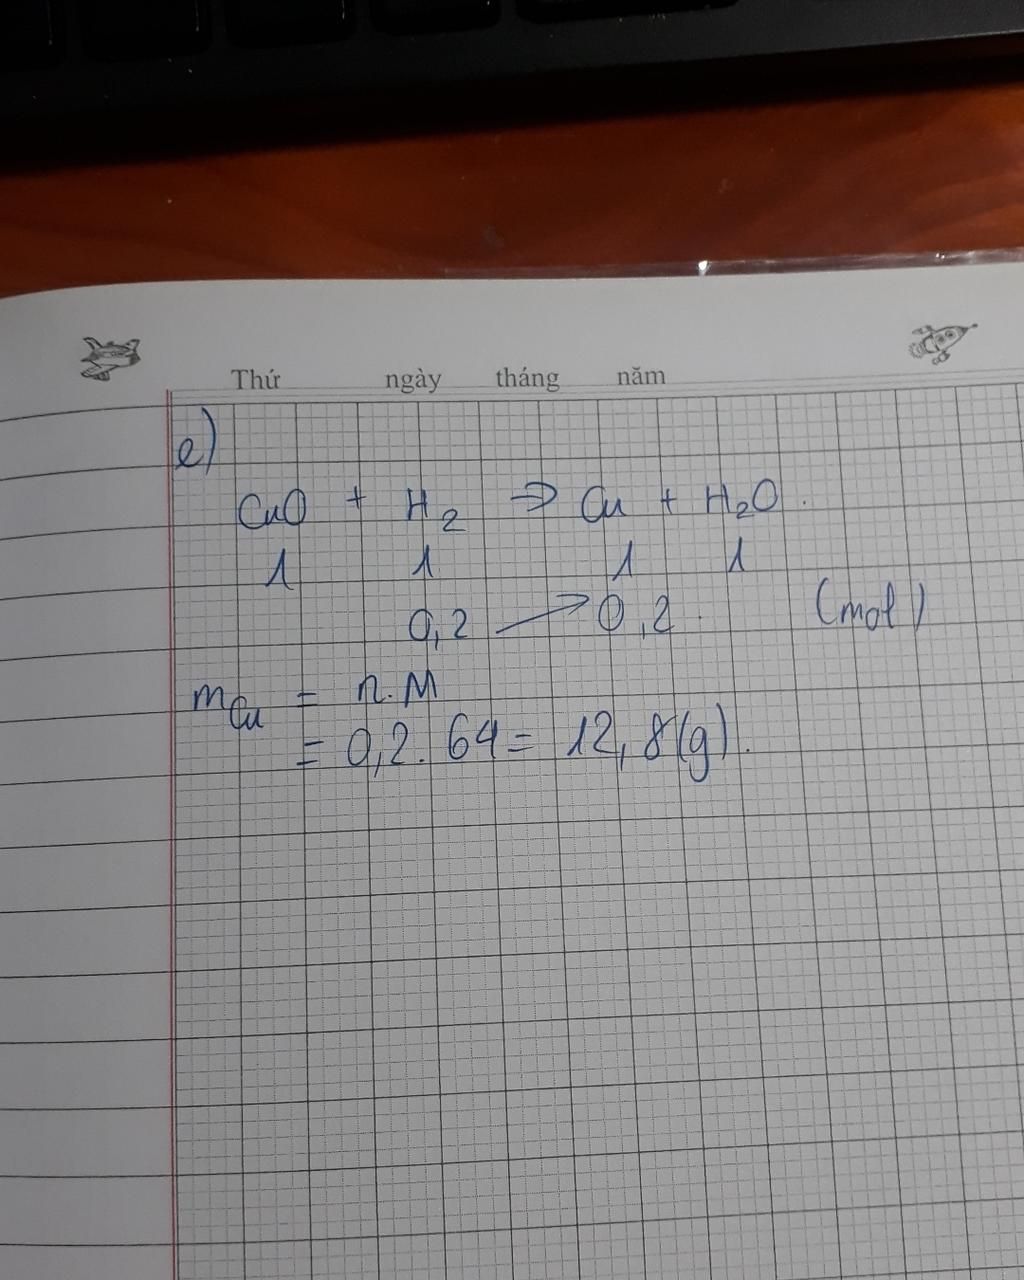 Thứ ngày tháng năm
e)
CuO + H₂ ⇒ Cu + H₂O.
1 1 1 1
0,2 → 0,2. (mol)
m_Cu = n.M
= 0,2. 64 = 12,8(g).